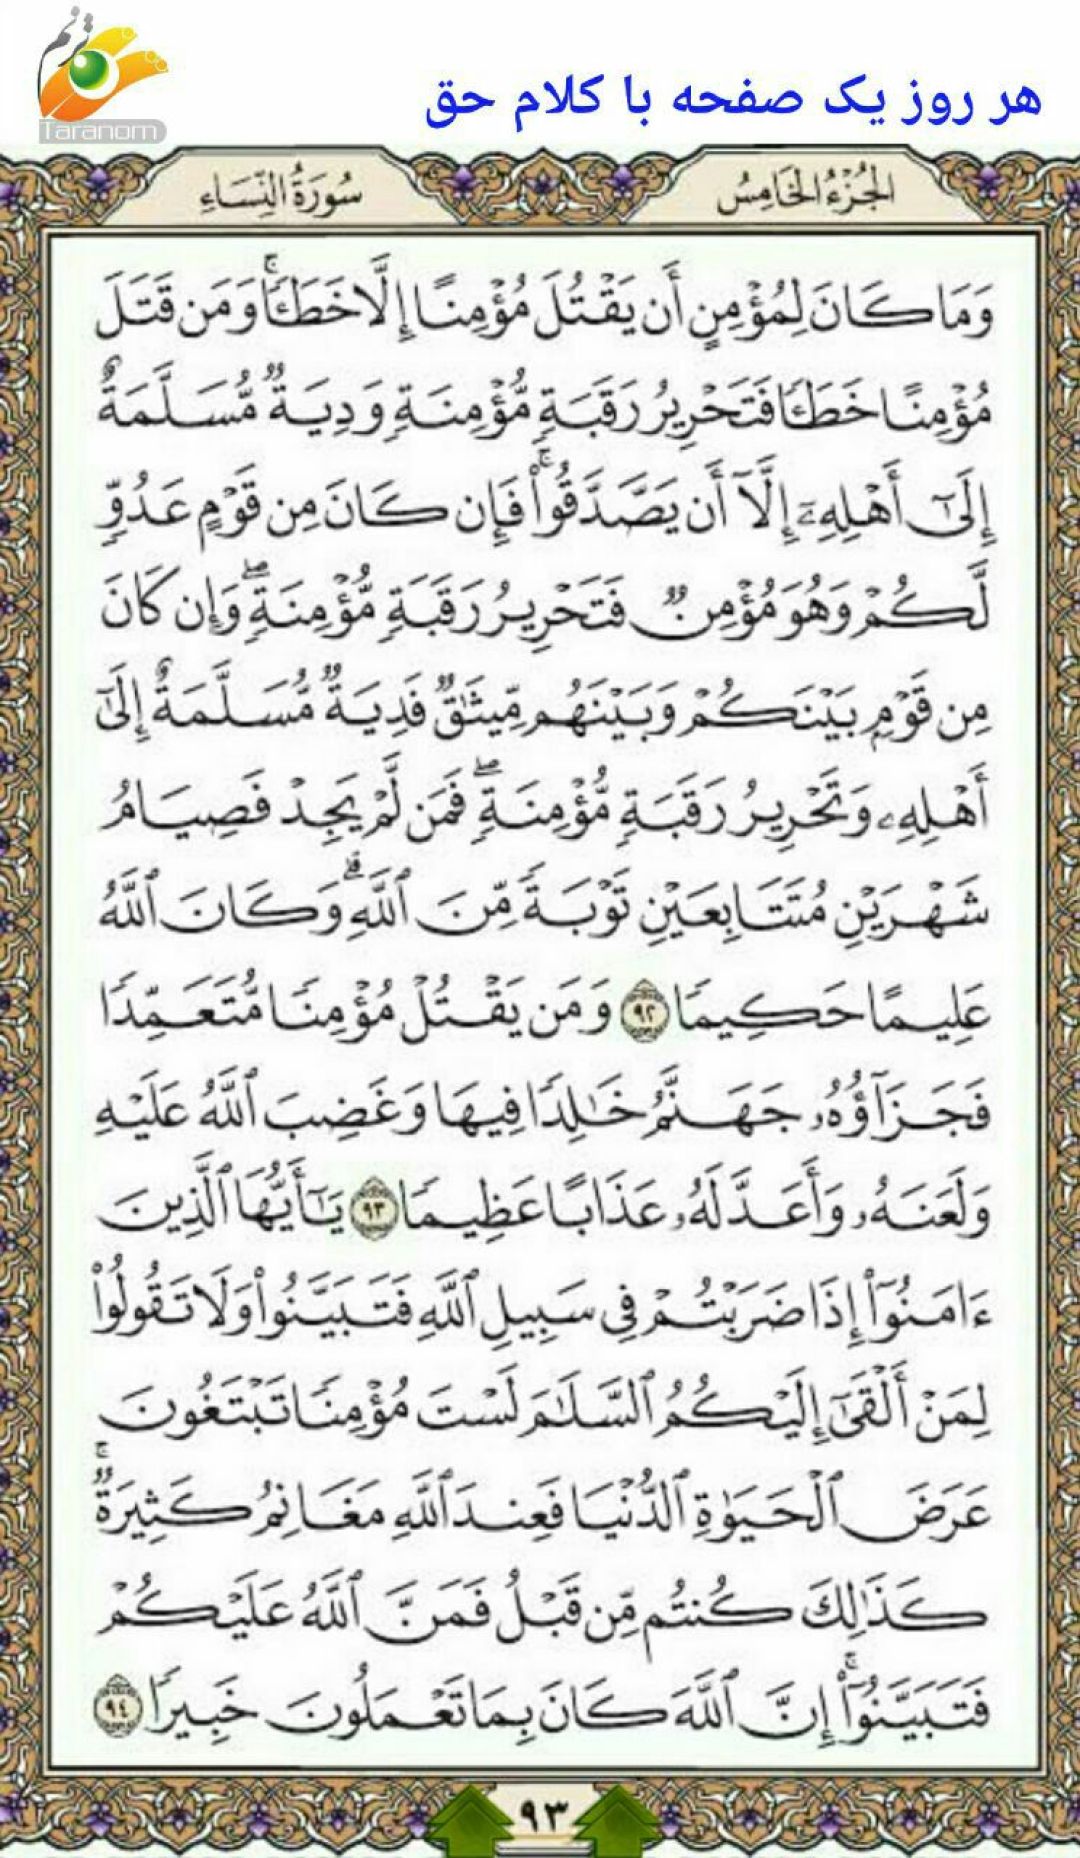 ترنم
Taranom
هر روز یک صفحه با کلام حق
الجُزْءُ الخَامِسُ
سُورَةُ النِّسَاءِ
وَمَا كَانَ لِمُؤْمِنٍ أَن يَقْتُلَ مُؤْمِنًا إِلَّا خَطَـًٔا ۚ وَمَن قَتَلَ
مُؤْمِنًا خَطَـًٔا فَتَحْرِيرُ رَقَبَةٍ مُّؤْمِنَةٍ وَدِيَةٌ مُّسَلَّمَةٌ
إِلَىٰٓ أَهْلِهِۦٓ إِلَّآ أَن يَصَّدَّقُوا۟ ۚ فَإِن كَانَ مِن قَوْمٍ عَدُوٍّ
لَّكُمْ وَهُوَ مُؤْمِنٌ فَتَحْرِيرُ رَقَبَةٍ مُّؤْمِنَةٍ ۖ وَإِن كَانَ
مِن قَوْمٍۭ بَيْنَكُمْ وَبَيْنَهُم مِّيثَٰقٌ فَدِيَةٌ مُّسَلَّمَةٌ إِلَىٰٓ
أَهْلِهِۦ وَتَحْرِيرُ رَقَبَةٍ مُّؤْمِنَةٍ ۖ فَمَن لَّمْ يَجِدْ فَصِيَامُ
شَهْرَيْنِ مُتَتَابِعَيْنِ تَوْبَةً مِّنَ ٱللَّهِ ۗ وَكَانَ ٱللَّهُ
عَلِيمًا حَكِيمًا ٩٢ وَمَن يَقْتُلْ مُؤْمِنًا مُّتَعَمِّدًا
فَجَزَآؤُهُۥ جَهَنَّمُ خَٰلِدًا فِيهَا وَغَضِبَ ٱللَّهُ عَلَيْهِ
وَلَعَنَهُۥ وَأَعَدَّ لَهُۥ عَذَابًا عَظِيمًا ٩٣ يَٰٓأَيُّهَا ٱلَّذِينَ
ءَامَنُوٓا۟ إِذَا ضَرَبْتُمْ فِى سَبِيلِ ٱللَّهِ فَتَبَيَّنُوا۟ وَلَا تَقُولُوا۟
لِمَنْ أَلْقَىٰٓ إِلَيْكُمُ ٱلسَّلَٰمَ لَسْتَ مُؤْمِنًا تَبْتَغُونَ
عَرَضَ ٱلْحَيَوٰةِ ٱلدُّنْيَا فَعِندَ ٱللَّهِ مَغَانِمُ كَثِيرَةٌ ۚ
كَذَٰلِكَ كُنتُم مِّن قَبْلُ فَمَنَّ ٱللَّهُ عَلَيْكُمْ
فَتَبَيَّنُوٓا۟ ۚ إِنَّ ٱللَّهَ كَانَ بِمَا تَعْمَلُونَ خَبِيرًا ٩٤
٩٣